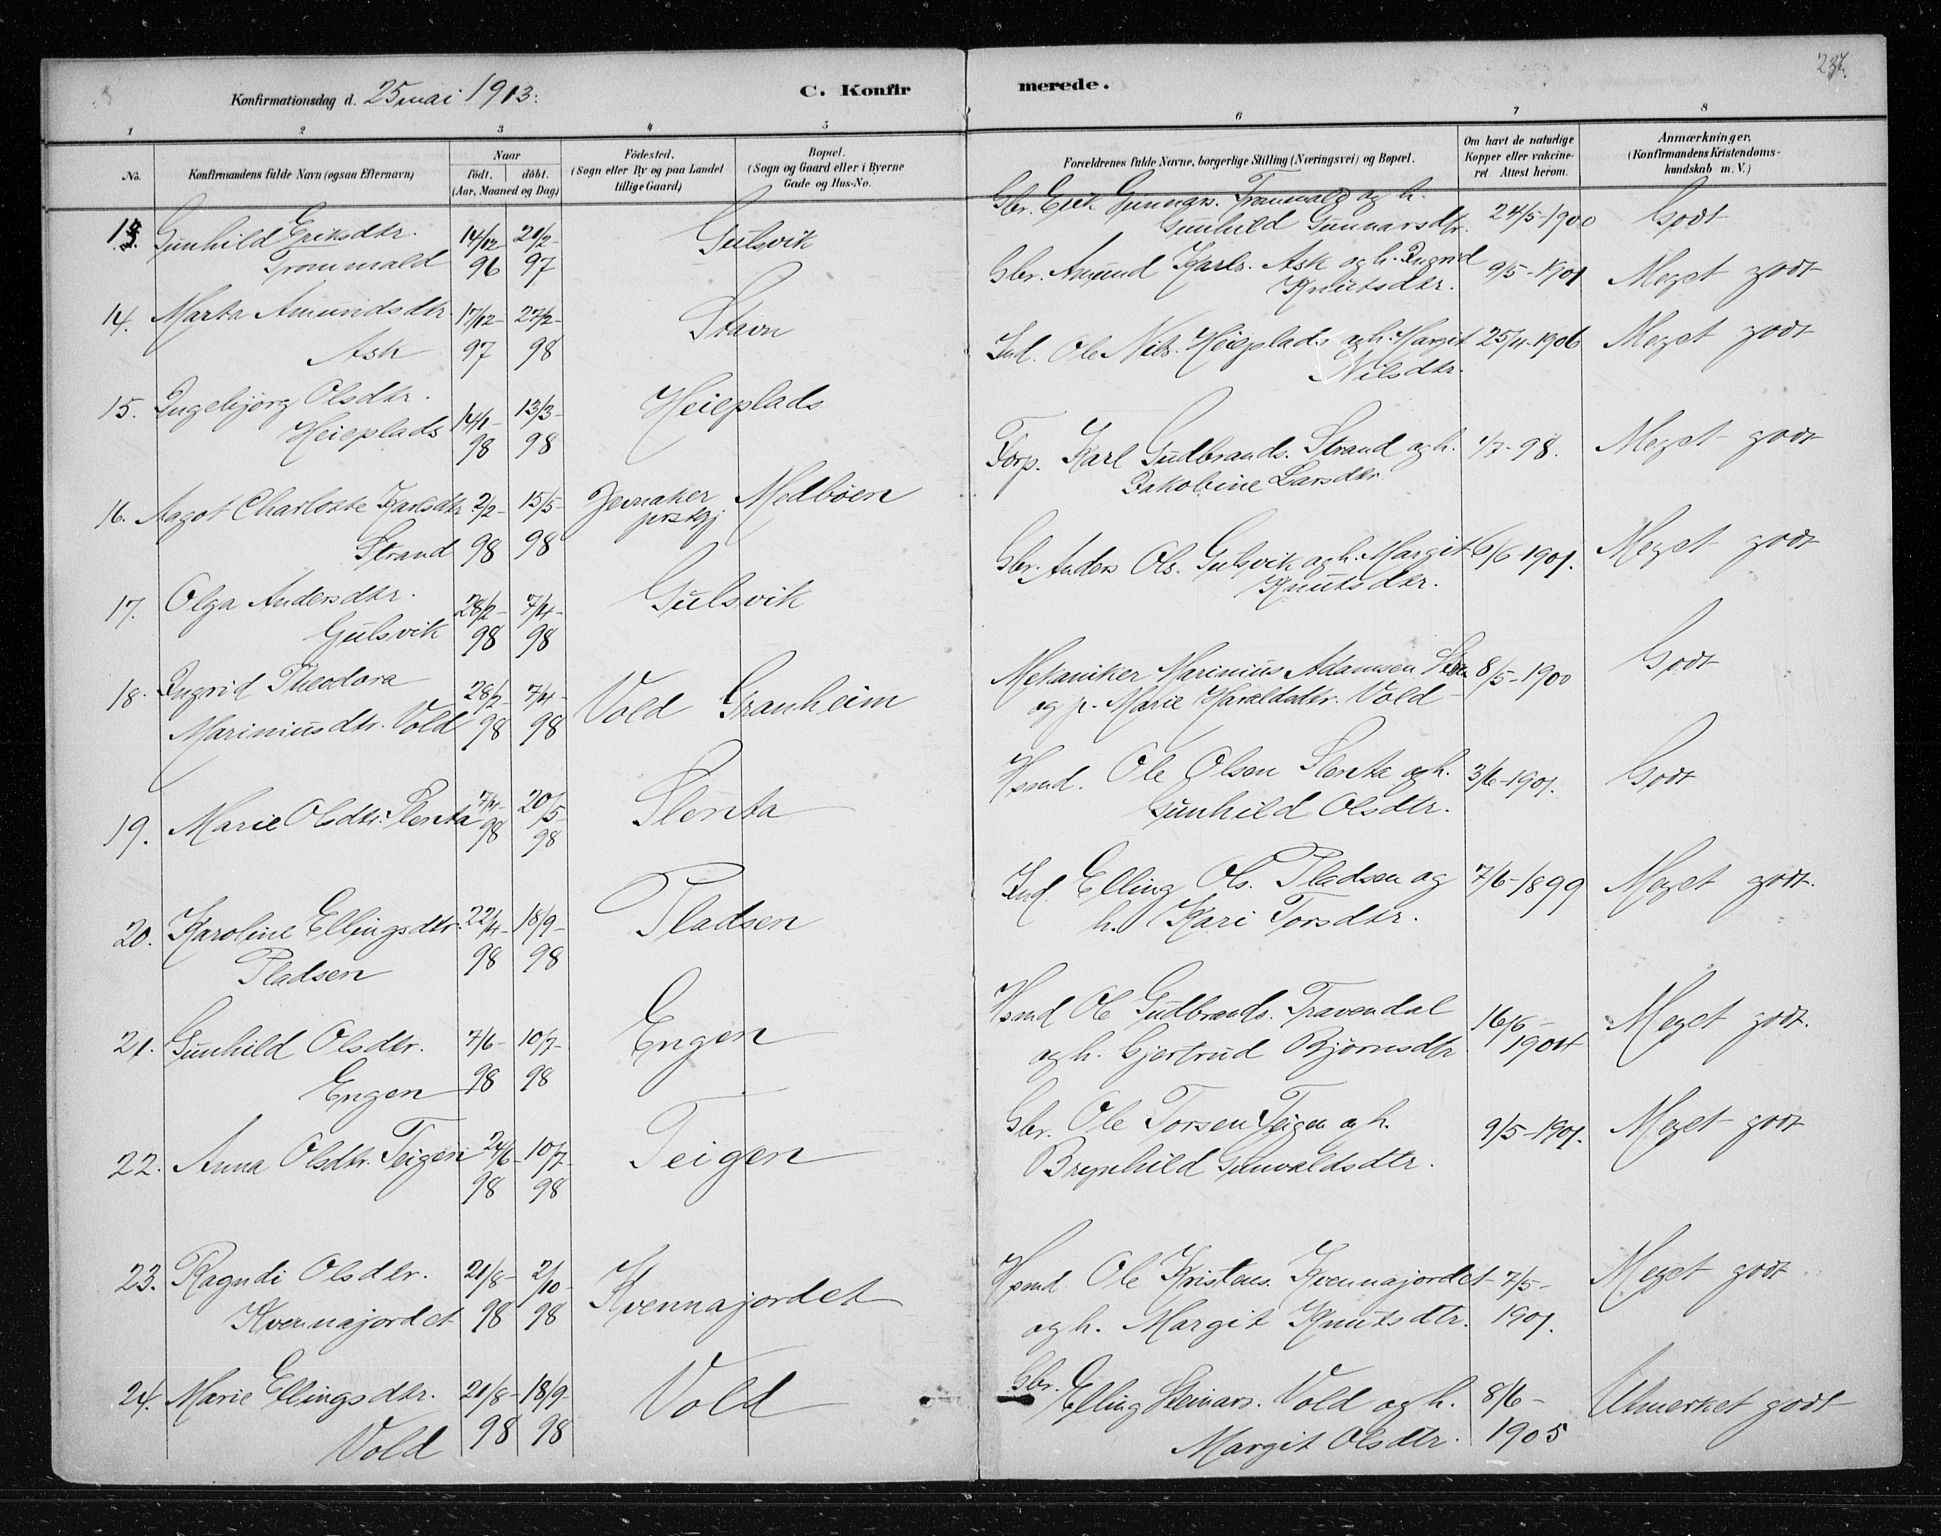 237.
Konfirmationsdag d. 25 mai 1913.
C. Konfirmerede.
1 2 3 4 5 6 7 8
No.
Konfirmandens fulde Navn (ogsaa Efternavn)
Naar
født. døbt.
(Aar, Maaned og Dag)
Fødested.
(Sogn eller By og paa Landet
tillige Gaard)
Bopæl.
(Sogn og Gaard eller i Byerne
Gade og Hus-No.
Forældrenes fulde Navne, borgerlige Stilling (Næringsvei) og Bopæl.
Om havt de naturlige
Kopper eller vakcine-
ret Attest herom.
Anmærkninger.
(Konfirmandens Kristendoms-
kundskab m. V.)
13. Gunhild Eriksdtr. 14/12- 21/2- Gulsvik Gbr. Erik Gunnars. Trommald og h. 24/5-1900 Godt
Trommald 96 97 Gunhild Gunnarsdtr.
14. Marta Amundsdtr. 17/12- 27/2- Stavn Gbr. Amund Karls. Ask og h. Ingrid 9/5-1901 Meget godt
Ask 97 98 Knutsdtr.
15. Ingebjørg Olsdtr. 14/1- 13/3- Heieplads Ind. Ole Nils. Heieplads og h. Margit 25/4-1906 Meget godt
Heieplads 98 98 Nilsdtr.
16. Aagot Charlotte Karlsdtr. 2/2- 15/5- Jevnaker Medbøen Forp. Karl Gudbrands. Strand og h. 1/7-98. Meget godt
Strand 98 98 prstgj. Jakobine Larsdtr.
17. Olga Andersdtr. 28/2- 7/4- Gulsvik Gbr. Anders Ols. Gulsvik og h. Margit 6/6-1901. Meget godt
Gulsvik 98 98 Knutsdtr.
18. Ingrid Theodora 28/2- 7/4- Vold Granheim Mekaniker Marinius Adamsen 8/5-1900 Godt
Mariniusdtr. Vold 98 98 og p. Marie Haraldsdtr. Vold
19. Marie Olsdtr. Slenta 7/4- 20/5- Slenta Hsmd. Ole Olsen Slenta og h. 3/6-1901. Godt
98 98 Gunhild Olsdtr.
20. Karoline Ellingsdtr. 22/4- 18/9- Pladsen Ind. Elling Ols. Pladsen og 7/6-1899 Meget godt.
Pladsen 98 98 h. Kari Torsdtr.
21. Gunhild Olsdtr. 7/6- 10/7- Engen Hsmd Ole Gudbrands. Travendal 16/6- Meget godt.
Engen 98 98 og h. Gjertrud Bjørnsdtr 1901
22. Anna Olsdtr. Teigen 24/6- 10/7- Teigen Gbr. Ole Torsen Teigen og h. 9/5-1901. Meget godt
98 98 Brynhild Gunvaldsdtr.
23. Ragndi Olsdtr. 21/8- 2/10- Kvennajordet Hsmd Ole Kristens. Kvennajordet 7/5- Meget godt
Kvennajordet 98 98 og h. Margit Knutsdtr. 1901.
24. Marie Ellingsdtr. 21/8- 18/9- Vold Gbr. Elling Steinars. Vold og h. 8/6- Utmerket godt
Vold 98 98 Margit Olsdtr. 1905